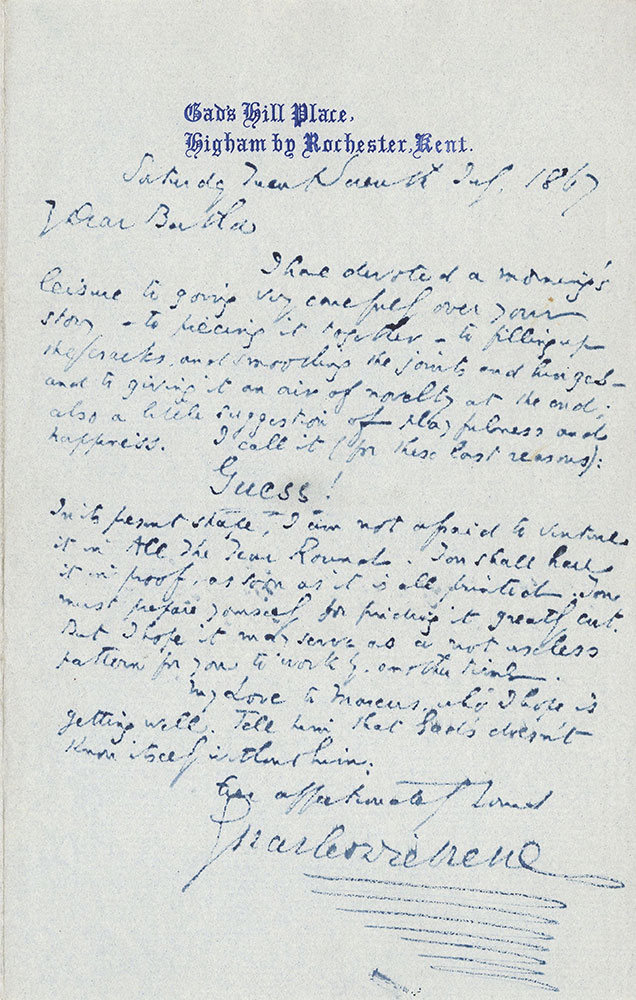 Gad's Hill Place,
Higham by Rochester, Kent.
Saturday Twenty Seventh July, 1867
My Dear Bertha
I have devoted a morning's
leisure to going very carefully over your
story – to piecing it together – to filling up
the cracks, and smoothing the joints and hinges –
and to giving it an air of novelty at the end;
also a little suggestion of playfulness and
happiness. I call it (for these last reasons):
Guess!
In its present state, I am not afraid to venture
it in All The Year Round. You shall have
it in proof, as soon as it is all printed. You
must prepare yourself for finding it greatly cut.
But I hope it may serve as a not useless
pattern for you to work by, another time.
My love to Marcus, who I hope is
getting well. Tell him that Gad's doesn't
know itself without him.
Ever affectionately Yours
Charles Dickens